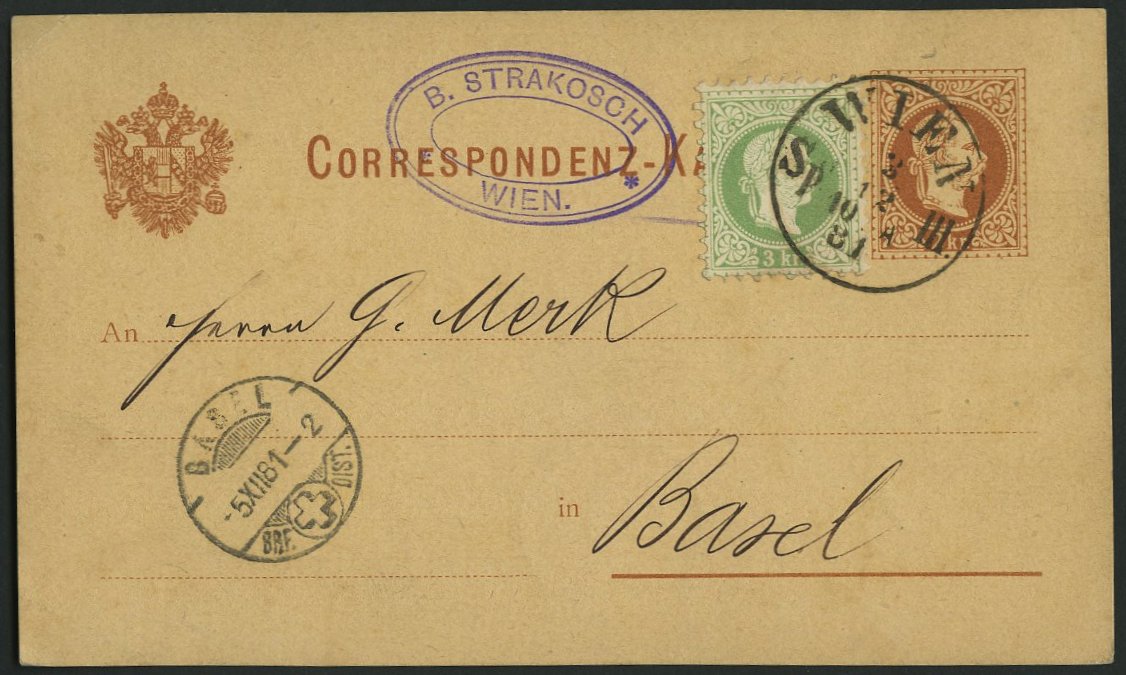 B. STRAKOSCH
WIEN.
CORRESPONDENZ-KA
3 kr
kr
WIEN
Sp III.
3
12
10 A
81
An Herrn G. Merk
BASEL
-5XII81-2
BRF. DIST.
in Basel